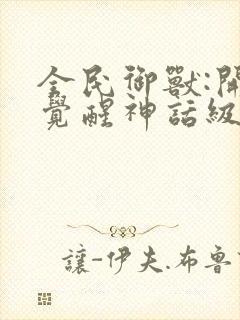 全民御獸:開
覺醒神話級
讓-伊夫.布魯